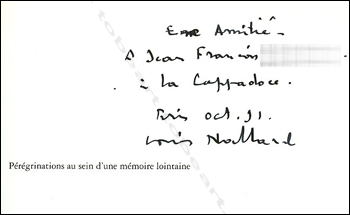 En Amitié
A Jean François
à la Cappadoce.
Paris oct. 91.
Louis Nallard
Pérégrinations au sein d'une mémoire lointaine